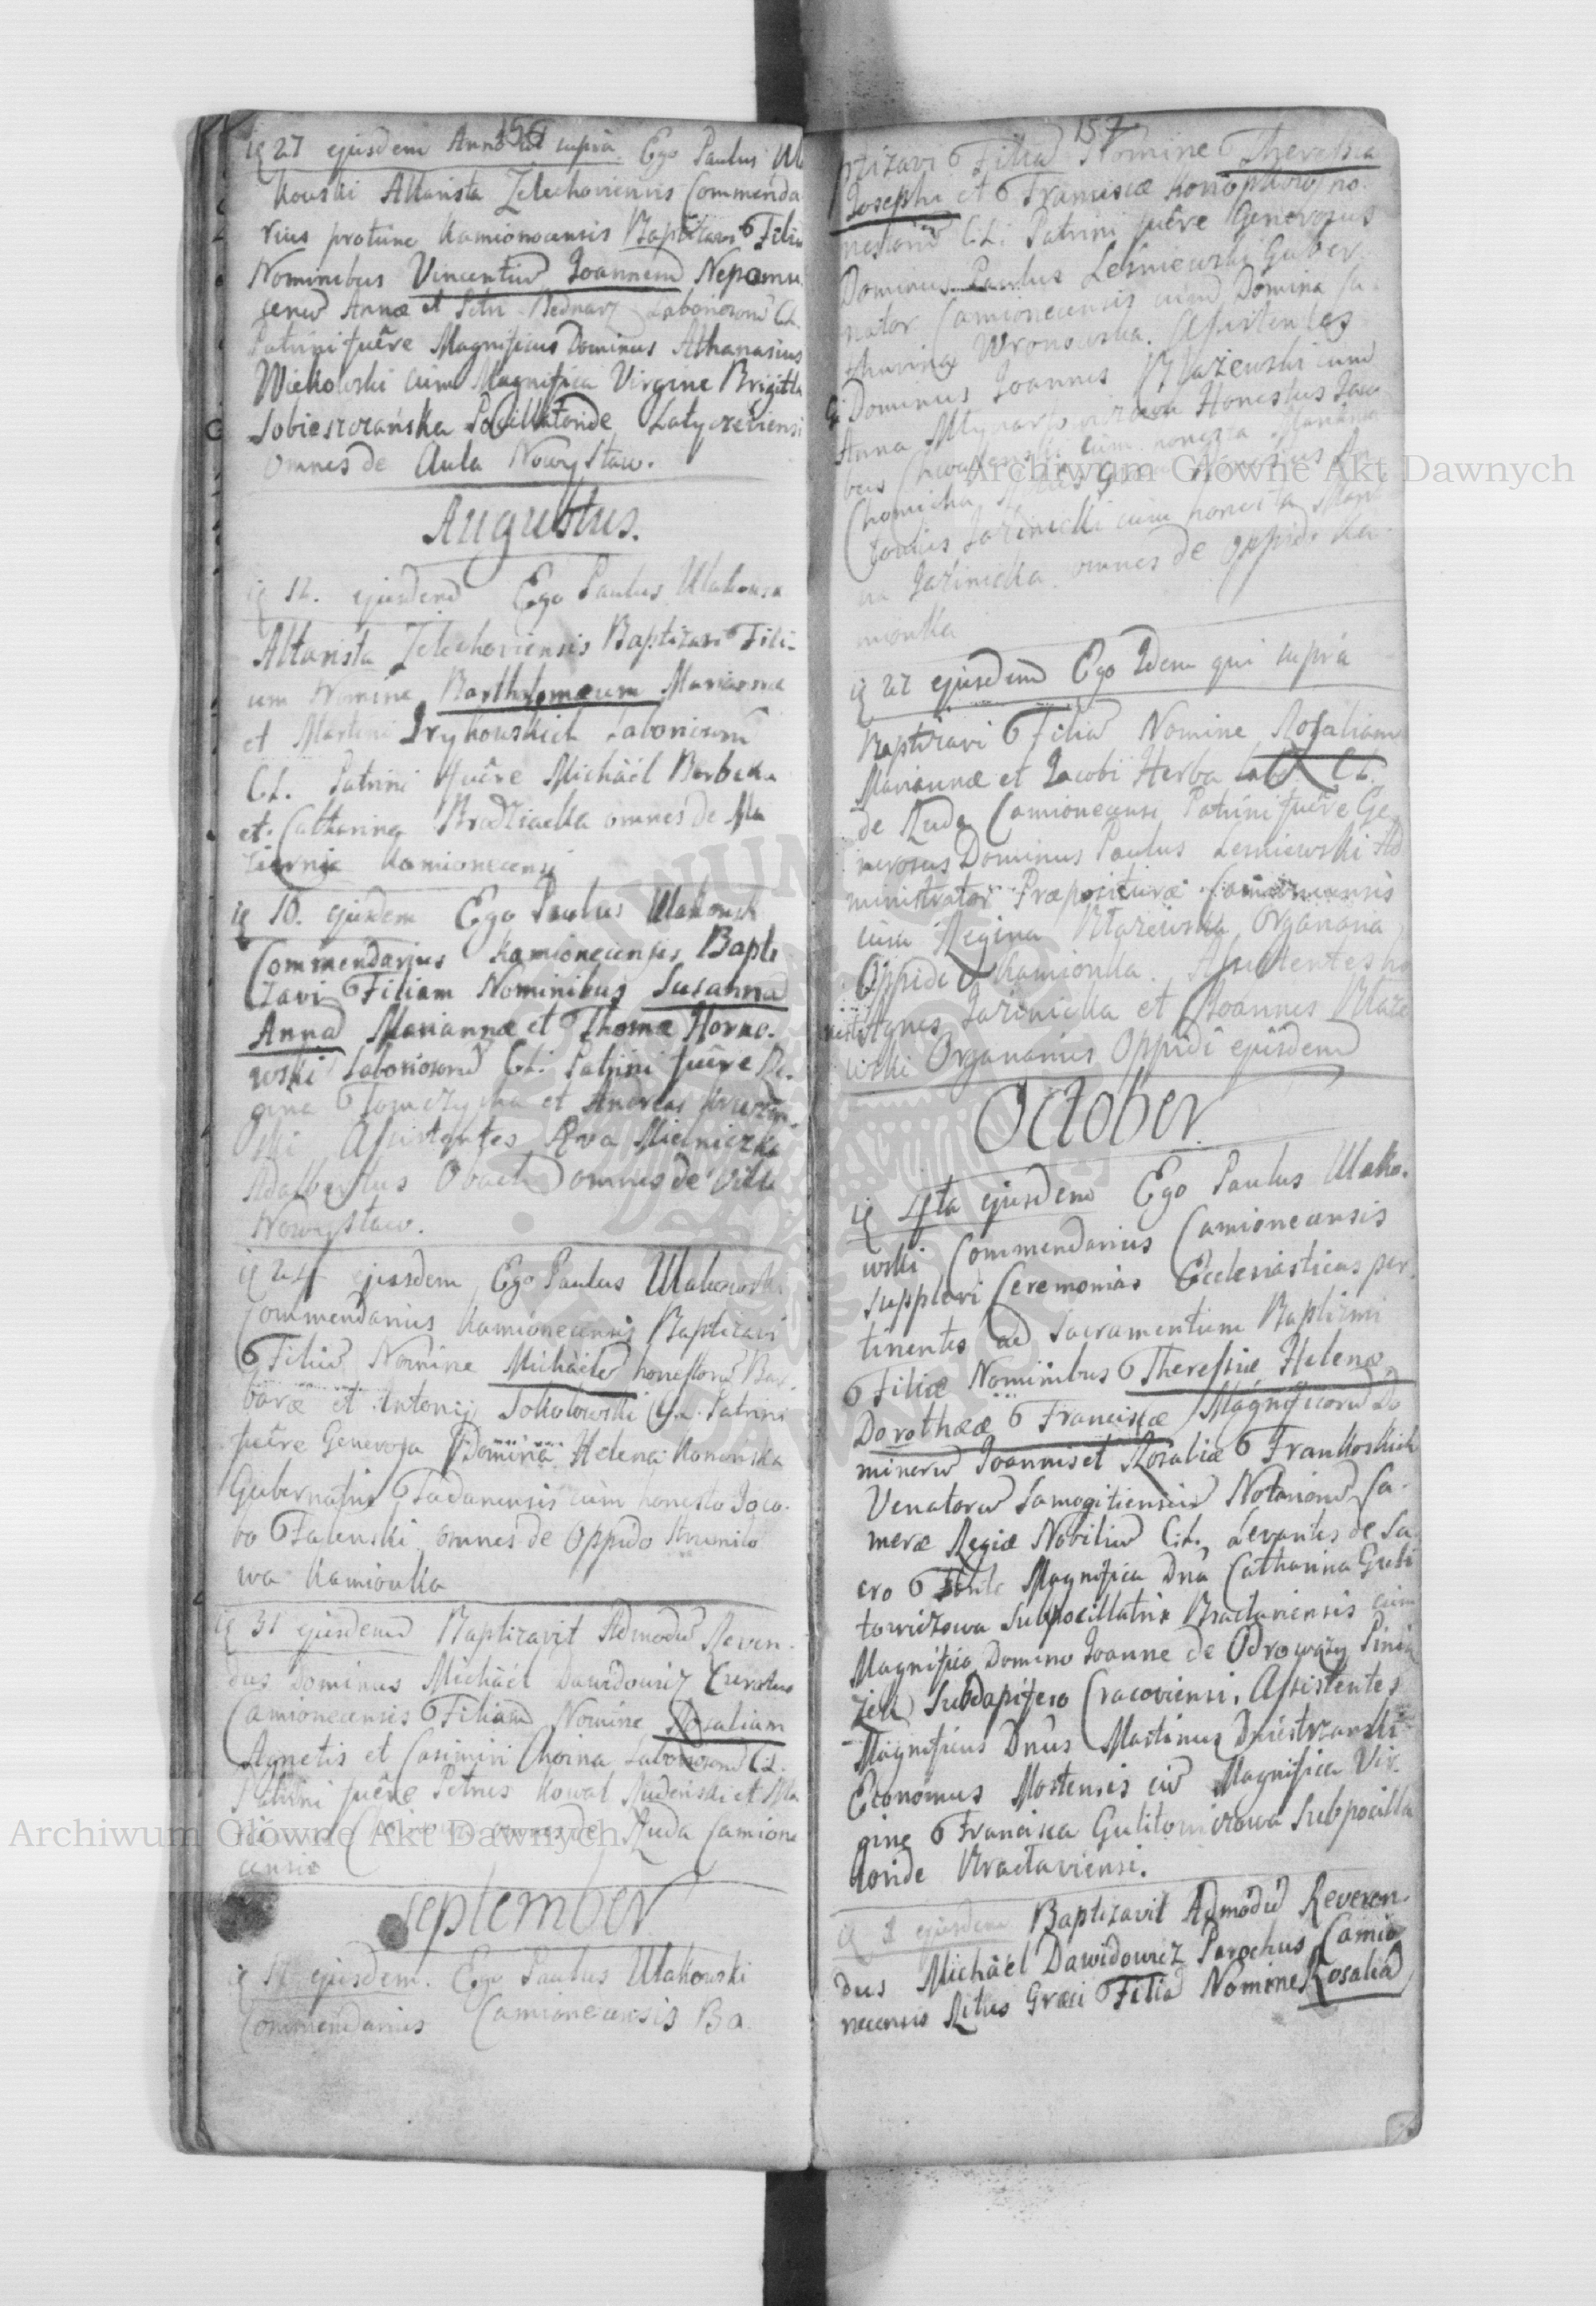 156
27 ejusdem Anno ut supra Ego Paulus Ula
kowski Altarista Zelechoviensis Commenda
rius protunc Kamionacensis Baptizavi Filiu
Nominibus Vincentiu Joannem Nepomu
cenu Annæ et Petri Bednarz Laboriosoru C.L.
Patrini fuêre Magnificus Dominus Athanasius
Wickowski cum Magnifica Virgine Brigitta
Sobieszczańska Pocillatoride Latyczeviensi
omnes de Aula Nowystaw.
Augustus.
12. ejusdem Ego Paulus Ulakows
Altarista Zelechoviensis Baptizavi Fili-
um Nomine Bartholomæum Mariannæ
et Martini Irykowskich Laboriosoru
C.L. Patrini fuêre Michäel Berbeka
et Catharina Brodziacka omnes de
Kamionecensi
10. ejusdem Ego Paulus Ulakowsk
Commendarius Kamionecensis Bapti
zavi Filiam Nominibus Susanna
Anna Mariannæ et Thomæ Horno-
wski Laboriosoru C.L. Patrini fuêre Re-
gina Tomczycha et Andreas
ski Assistentes Eva Mielniczka
Adalbertus omnes de Villa
Nowystaw.
24 ejusdem Ego Paulus Ulakowski
Commendarius Kamionecensis Baptizavi
Filiu Nomine Michäele honestoru Bar-
baræ et Antonij Sokolowski C.L. Patrini
fuêre Generosa Domina Helena Kononska
Gubernatrix Tadanensis cum honesto Jaco-
bo Falenski omnes de Oppido Strumilo
wa Kamionka
31 ejusdem Baptizavit Admodu Reveren-
dus Dominus Michäel Dawidowicz Curatus
Camionecensis Filiam Nomine Rosaliam
Agnetis et Casimiri Choina Laboriosoru C.L.
Patrini fuêre Petrus Kowal Rudenski et Ma
ria omnes de Ruda Camione
censis
September
12 ejusdem. Ego Paulus Ulakowski
Commendarius Camionecensis Ba
157
ptizavi Filia Nomine Theressia
Josephi et Franciscæ
nestoru C.L. Patrini fuêre Generosus
Dominus Paulus Lesniewski Guber-
nator Camionecensis cum Domina Ca-
tharina Wronowska. Assistentes
Dominus Joannes Blazewski cum
Anna Honestus Jaco
bus cum honesta Marianna
Chomicka Honestus An
tonius Jazinicki cum honesta Mari
na Jazinicka omnes de Oppido Ka-
mionka
27 ejusdem Ego Idem qui supra
Baptizavi Filia Nomine Rosaliam
Mariannæ et Jacobi Herba Labo. C.L.
de Ruda Camionecensi Patrini fuêre Ge
nerosus Dominus Paulus Lesniewski Ad
ministrator Præpositura Camionecensis
cum Regina Blazewska Organaria
Oppidi Kamionka. Assistentes ho
nesti Agnes Jazinicka et Joannes Blaze
wski Organarius Oppidi ejusdem
October.
4ta ejusdem Ego Paulus Ulako-
wski Commendarius Camionecensis
supplevi Ceremonias Ecclesiasticas per-
tinentes ad Sacramentum Baptizmi
Filiæ Nominibus Theressiæ Helenæ
Dorotheæ Franciscæ Magnificoru Do
minoru Joannis et Rosaliæ Frankoskich
Venatoru Samogitiensiu Notarioru Ca-
meræ Regiæ Nobiliu C.L. Levantes de Sa
cro Fonte Magnifica Dna Catharina Guli
towiczowa Subpocillatrix Braclaviensis cum
Magnifico Domino Joanne de Odrowąży Pinia
zek Subdapifero Cracoviensi, Assistentes
Magnificus Dnus Martinus Dniestrzanski
Economus Mostensis cu Magnifica Vir-
gine Francisca Gulitowiczowa Subpocilla
toride Braclaviensi.
1 ejusdem Baptizavit Admodu Reveren-
dus Michäel Dawidowicz Parochus Camio
necensis Ritus Græci Filia Nomine Rosalia
Archiwum Główne Akt Dawnych
Archiwum Główne Akt Dawnych